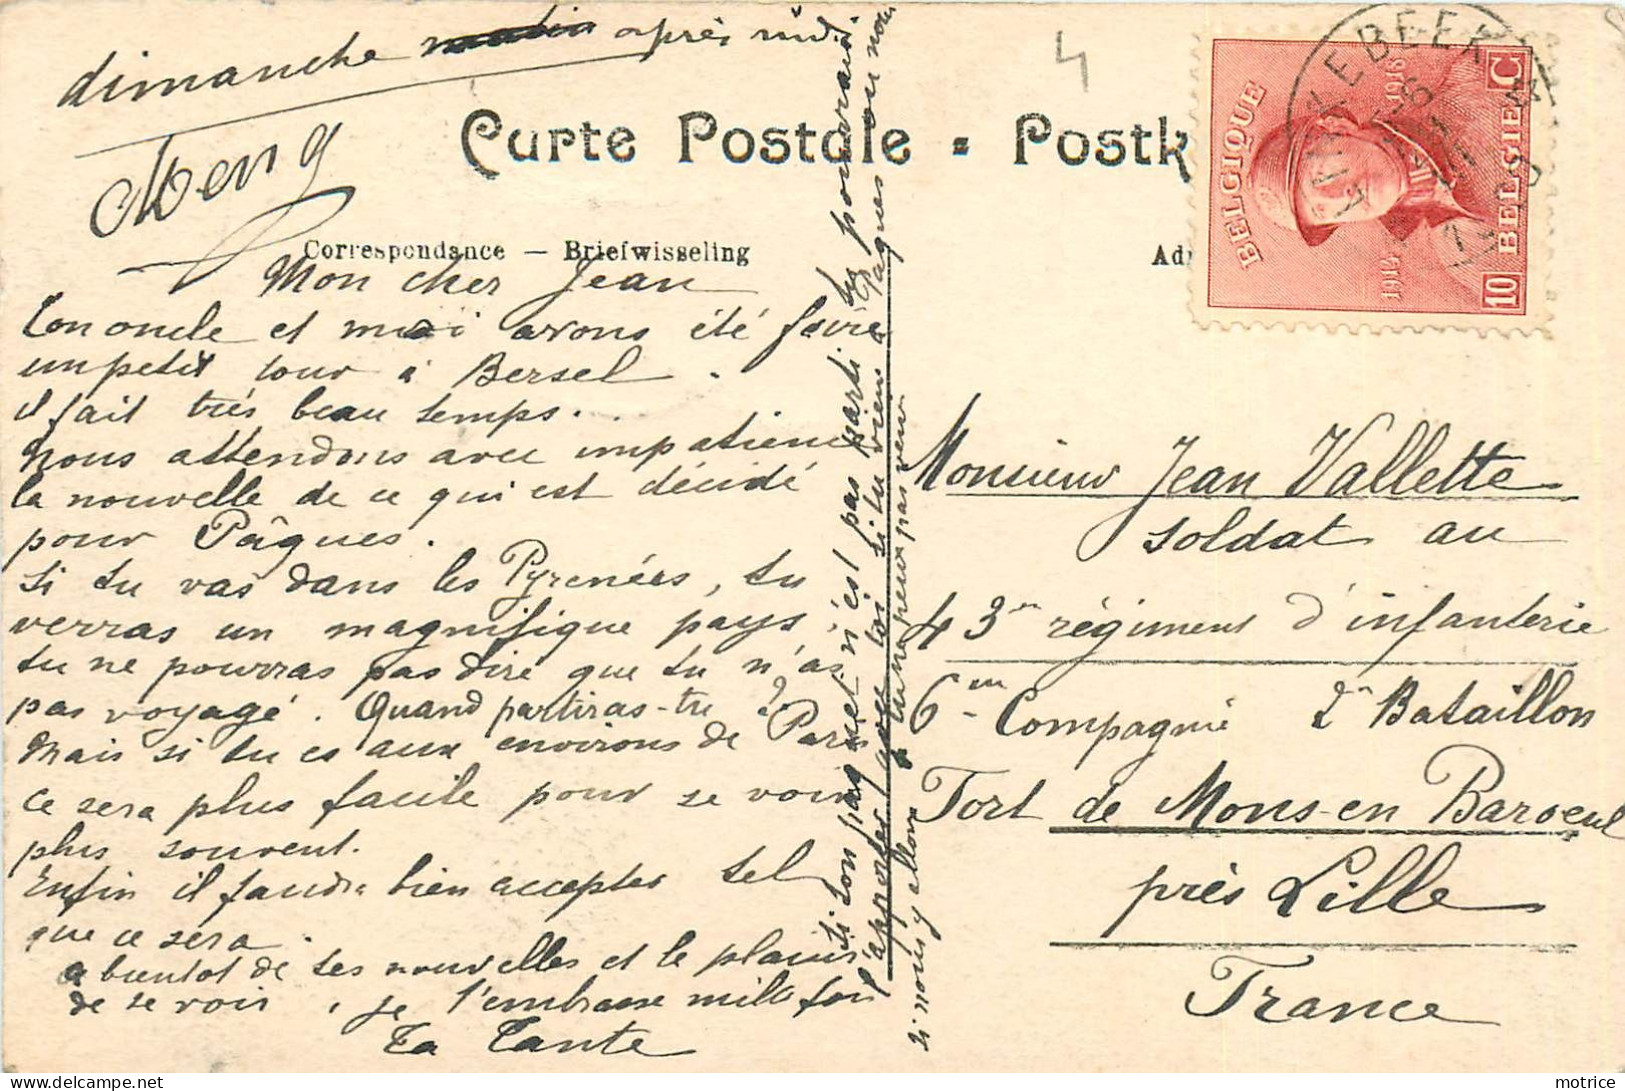 dimanche matin après midi
Carte Postale - Postk
Correspondance — Briefwisseling
Mon cher Jean
Ton oncle et moi avons été faire
un petit tour à Bersel.
il fait très beau temps..
Nous attendons avec impatience
la nouvelle de ce qui est décidé
pour Pâques.
Si tu vas dans les Pyrenées, tu
verras un magnifique pays
tu ne pourras pas dire que tu n'as
pas voyagé. Quand partiras-tu ?
Mais si tu es aux environs de Paris
ce sera plus facile pour se voir
plus souvent.
Enfin il faudra bien accepter tel
que ce sera.
a bientot de tes nouvelles et le plaisir
de se voir, je t'embrasse mille fois
Ta Tante
Si ton paquet n'est pas parti tu pourrais
l'apporter avec toi si tu viens a Paques ou nous
si nous y allons tu ne peux pas venir
4
BELGIQUE
1914 1919
10 BELGIË C
Ad
Monsieur Jean Vallette
soldat au
43me régiment d'infanterie
6me Compagnie 2e Bataillon
Fort de Mons-en Baroeul
près Lille
France
motrice